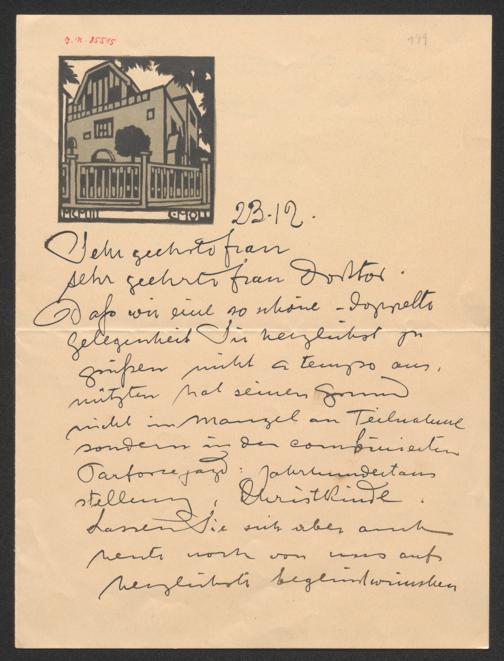 J.N. 35515
149
MCMIII
C·MOLL
23.12.
Sehr geehrte Frau
sehr geehrte Frau Doktor.
Daß wir eine so schöne - doppelte
Gelegenheit Sie herzlichst zu
grüßen nicht a tempo aus,
nützten hat seinen Grund
nicht in Mangel an Teilnahme
sondern in der combinierten
Parforcejagd: Jahrhundertaus
stellung, Christkindl.
Lassen Sie sich aber auch
heute noch von uns aufs
herzlichste beglückwünschen